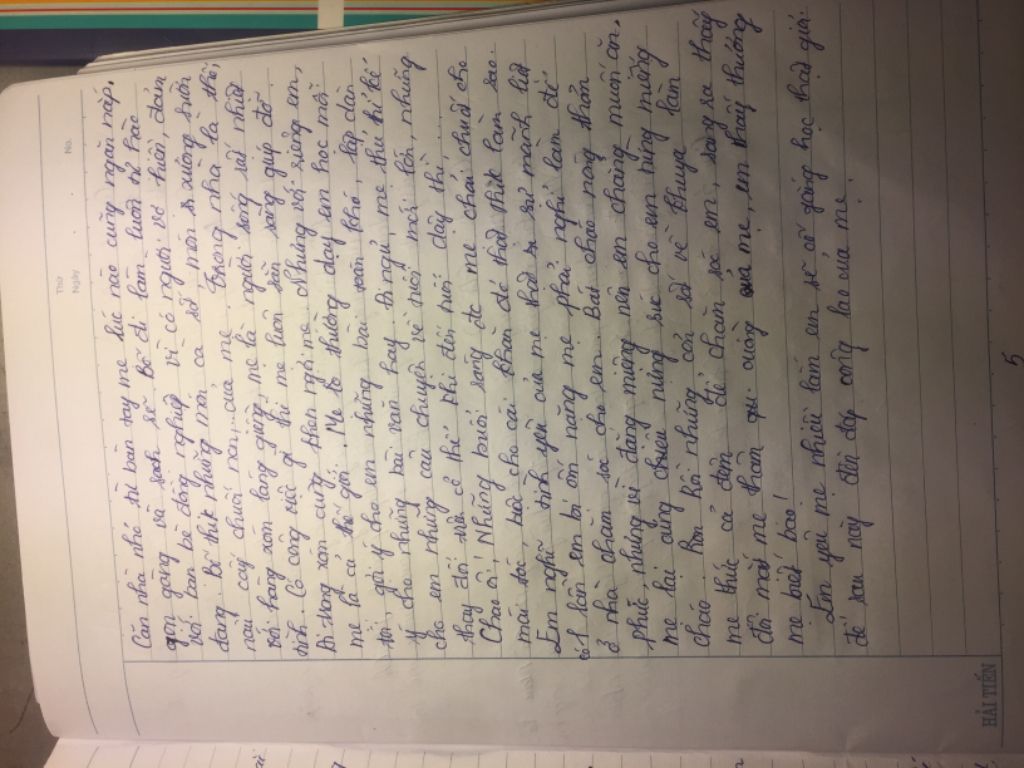 Thứ
Ngày
No.
Căn nhà nhỏ từ bàn tay mẹ lúc nào cũng ngăn nắp,
gọn gàng và sạch sẽ. Bố đi làm luôn tự hào
với bạn bè đồng nghiệp vì có người vợ hiền, đảm
đang. Bí thư những mới cà số món sa xuống trần
nấu cây chuối non, của mẹ. Trong nhà là thế,
với hàng xóm láng giềng, mẹ là người sống rất nhiệt
tình. Có công việc gì thì mẹ luôn sẵn sàng giúp đỡ.
Đi trong xóm cũng khen ngợi mẹ. Nhưng với riêng em,
mẹ là cả thế giới. Mẹ đã thường dạy em học mỗi
tối, gợi ý cho em những bài toán khó, tập dàn
ý cho những bài văn hay. Đi ngủ mẹ thủ thỉ kể
cho em những câu chuyện về tuổi mới lớn, những
thay đổi về cơ thể khi đến tuổi dậy thì...
Chao ôi! Những buổi sáng để mẹ chải chuốt cho
mái tóc, bôi cho cái khăn đỏ thật thích làm sao.
Em nghĩ tình yêu của mẹ thật là sự mãnh liệt
có 1 lần em bị ốm nặng mẹ phải nghỉ làm để
ở nhà chăm sóc cho em. Bát cháo nóng thổi
phiu nhưng vì đắng miệng nên em chẳng muốn ăn.
Mẹ lại dùng chiếc nũng súc cho em từng miếng
cháo. Rồi hồi những cái sờ về khuya làm
mẹ thức cả đêm để chăm sóc em, sáng ra thấy
đôi mắt mẹ thâm quầng của mẹ, em thấy thương
mẹ biết bao!
Em yêu mẹ nhiều lắm em sẽ cố gắng học thật giỏi
để sau này đền đáp công lao của mẹ.
HẢI TIẾN
5